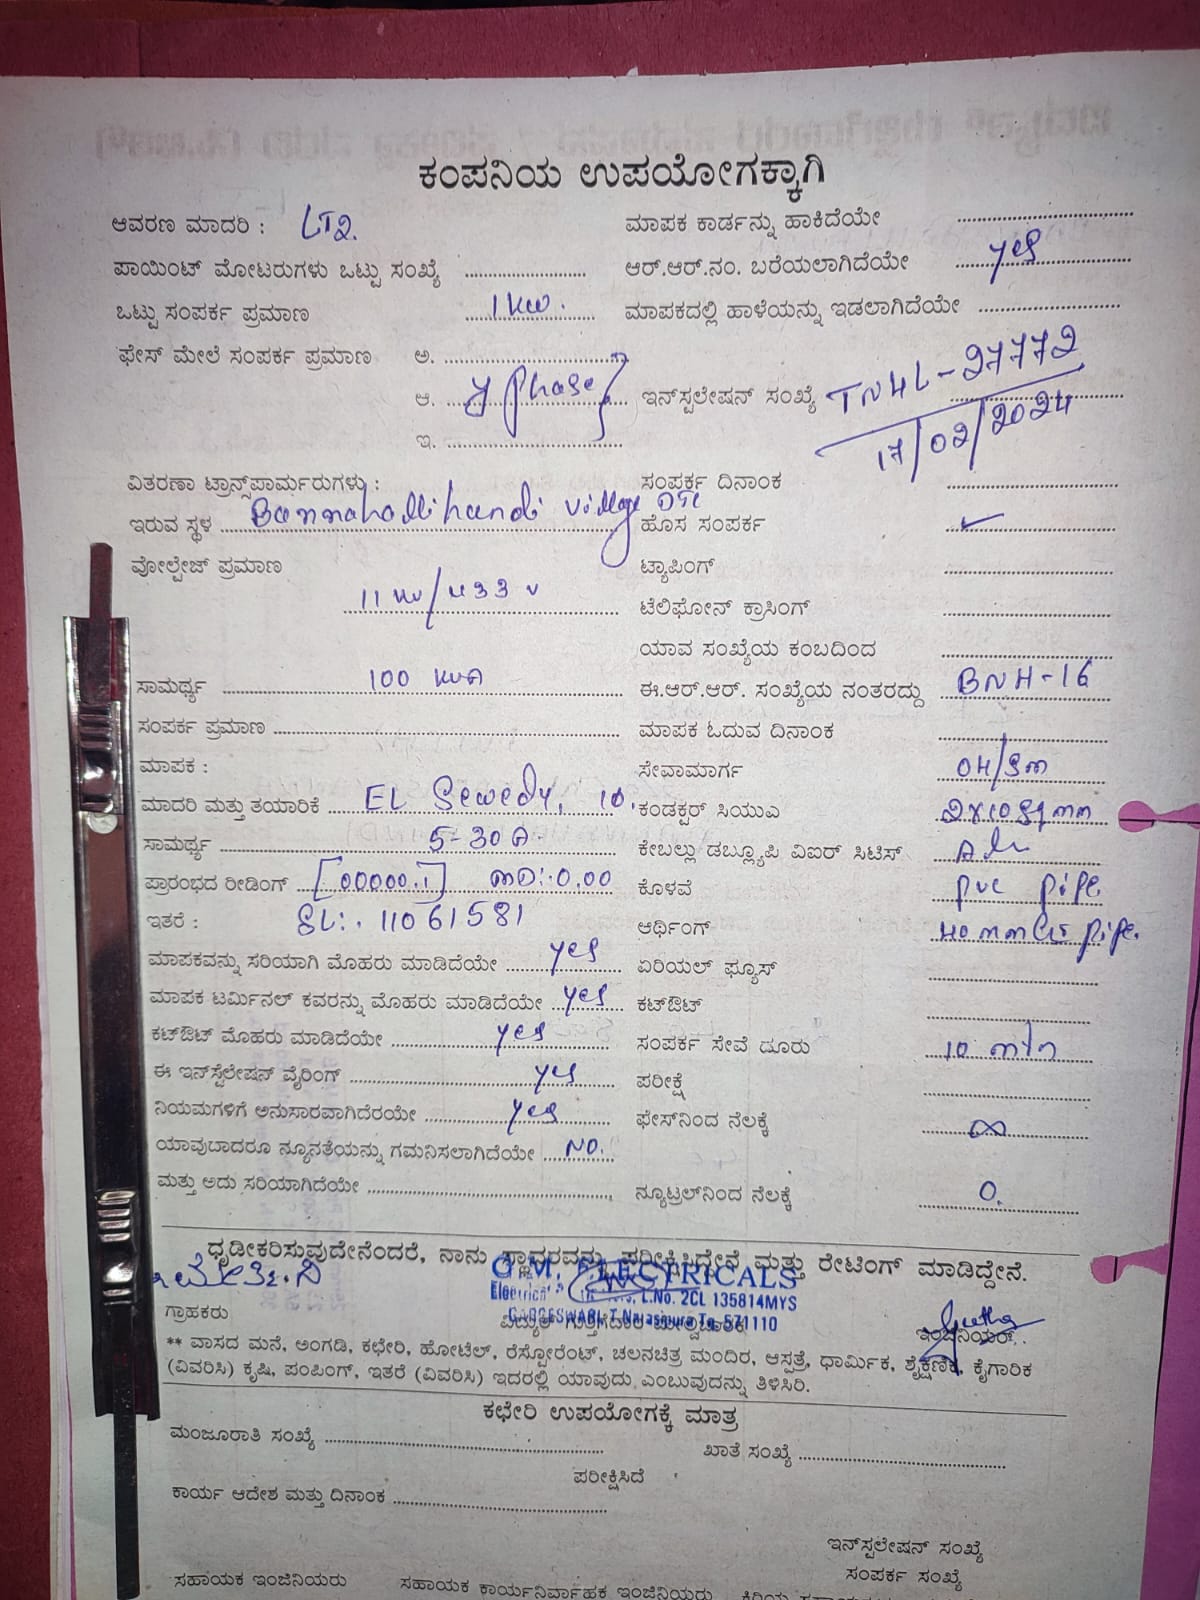 ಕಂಪನಿಯ ಉಪಯೋಗಕ್ಕಾಗಿ
ಆವರಣ ಮಾದರಿ : LT2. ಮಾಪಕ ಕಾರ್ಡನ್ನು ಹಾಕಿದೆಯೇ
ಪಾಯಿಂಟ್ ಮೋಟರುಗಳು ಒಟ್ಟು ಸಂಖ್ಯೆ ಆರ್.ಆರ್.ನಂ. ಬರೆಯಲಾಗಿದೆಯೇ yes
ಒಟ್ಟು ಸಂಪರ್ಕ ಪ್ರಮಾಣ 1 kw. ಮಾಪಕದಲ್ಲಿ ಹಾಳೆಯನ್ನು ಇಡಲಾಗಿದೆಯೇ
ಫೇಸ್ ಮೇಲೆ ಸಂಪರ್ಕ ಪ್ರಮಾಣ ಅ.
ಆ. y phase ಇನ್‌ಸ್ಟಲೇಷನ್ ಸಂಖ್ಯೆ TN4L-27772
ಇ. 17/02/2024
ವಿತರಣಾ ಟ್ರಾನ್ಸ್‌ಪಾರ್ಮರುಗಳು : ಸಂಪರ್ಕ ದಿನಾಂಕ
ಇರುವ ಸ್ಥಳ Bannahallihundi Village ಹೊಸ ಸಂಪರ್ಕ ✓
ವೋಲ್ಟೇಜ್ ಪ್ರಮಾಣ ಟ್ಯಾಪಿಂಗ್
11 kv/433 v ಟೆಲಿಫೋನ್ ಕ್ರಾಸಿಂಗ್
ಯಾವ ಸಂಖ್ಯೆಯ ಕಂಬದಿಂದ
ಸಾಮರ್ಥ್ಯ 100 kva ಈ.ಆರ್.ಆರ್. ಸಂಖ್ಯೆಯ ನಂತರದ್ದು BNH-16
ಸಂಪರ್ಕ ಪ್ರಮಾಣ ಮಾಪಕ ಓದುವ ದಿನಾಂಕ
ಮಾಪಕ : ಸೇವಾಮಾರ್ಗ OH/sm
ಮಾದರಿ ಮತ್ತು ತಯಾರಿಕೆ EL Sewedy, 10. ಕಂಡಕ್ಟರ್ ಸಿಯುಎ 2x10 sqmm
ಸಾಮರ್ಥ್ಯ 5-30A. ಕೇಬಲ್ಲು ಡಬ್ಲ್ಯೂಪಿ ವಿಐರ್ ಸಿಟಿಸ್
ಪ್ರಾರಂಭದ ರೀಡಿಂಗ್ [00000.1] MD:.0.00 ಕೊಳವೆ pvc pipe.
ಇತರೆ : SL:. 11061581 ಆರ್ಥಿಂಗ್ 40 mm GI pipe.
ಮಾಪಕವನ್ನು ಸರಿಯಾಗಿ ಮೊಹರು ಮಾಡಿದೆಯೇ yes ಏರಿಯಲ್ ಫ್ಯೂಸ್
ಮಾಪಕ ಟರ್ಮಿನಲ್ ಕವರನ್ನು ಮೊಹರು ಮಾಡಿದೆಯೇ yes ಕಟ್‌ಔಟ್
ಕಟ್‌ಔಟ್ ಮೊಹರು ಮಾಡಿದೆಯೇ yes ಸಂಪರ್ಕ ಸೇವೆ ದೂರು 10
ಈ ಇನ್‌ಸ್ಟಲೇಷನ್ ವೈರಿಂಗ್ yes ಪರೀಕ್ಷೆ
ನಿಯಮಗಳಿಗೆ ಅನುಸಾರವಾಗಿದೆರಯೇ yes ಫೇಸ್‌ನಿಂದ ನೆಲಕ್ಕೆ ∞
ಯಾವುಬಾದರೂ ನ್ಯೂನತೆಯನ್ನು ಗಮನಿಸಲಾಗಿದೆಯೇ NO.
ಮತ್ತು ಅದು ಸರಿಯಾಗಿದೆಯೇ ನ್ಯೂಟ್ರಲ್‌ನಿಂದ ನೆಲಕ್ಕೆ 0.
ಧೃಡೀಕರಿಸುವುದೇನೆಂದರೆ, ನಾನು ಸ್ಥಾವರವನ್ನು ಪರೀಕ್ಷಿಸಿದ್ದೇನೆ ಮತ್ತು ರೇಟಿಂಗ್ ಮಾಡಿದ್ದೇನೆ.
G.M. ELECTRICALS
L.No. 2CL 135814MYS
GARGESWARI, T.Narasipura Tq. 571110
ಗ್ರಾಹಕರು ವಿದ್ಯುತ್ ಗುತ್ತಿಗೆದಾರ ಮೇಲ್ವಿಚಾರಕ ಇಂಜಿನಿಯರ್.
** ವಾಸದ ಮನೆ, ಅಂಗಡಿ, ಕಛೇರಿ, ಹೋಟೆಲ್, ರೆಸ್ಟೋರೆಂಟ್, ಚಲನಚಿತ್ರ ಮಂದಿರ, ಆಸ್ಪತ್ರೆ, ಧಾರ್ಮಿಕ, ಶೈಕ್ಷಣಿಕ, ಕೈಗಾರಿಕ
(ವಿವರಿಸಿ) ಕೃಷಿ, ಪಂಪಿಂಗ್, ಇತರೆ (ವಿವರಿಸಿ) ಇದರಲ್ಲಿ ಯಾವುದು ಎಂಬುವುದನ್ನು ತಿಳಿಸಿರಿ.
ಕಛೇರಿ ಉಪಯೋಗಕ್ಕೆ ಮಾತ್ರ
ಮಂಜೂರಾತಿ ಸಂಖ್ಯೆ ಖಾತೆ ಸಂಖ್ಯೆ
ಪರೀಕ್ಷಿಸಿದೆ
ಕಾರ್ಯ ಆದೇಶ ಮತ್ತು ದಿನಾಂಕ
ಇನ್‌ಸ್ಟಲೇಷನ್ ಸಂಖ್ಯೆ
ಸಂಪರ್ಕ ಸಂಖ್ಯೆ
ಸಹಾಯಕ ಇಂಜಿನಿಯರು ಸಹಾಯಕ ಕಾರ್ಯನಿರ್ವಾಹಕ ಇಂಜಿನಿಯರು